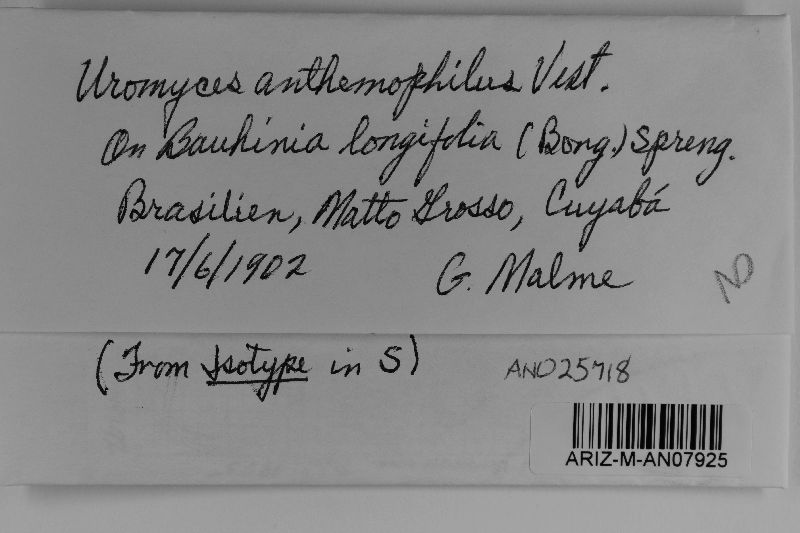 Uromyces anthemophilus Vest.
On Bauhinia longifolia (Bong.) Spreng.
Brasilien, Matto Grosso, Cuyabá
17/6/1902 G. Malme
ND
(From Isotype in S)
AN025718
ARIZ-M-AN07925